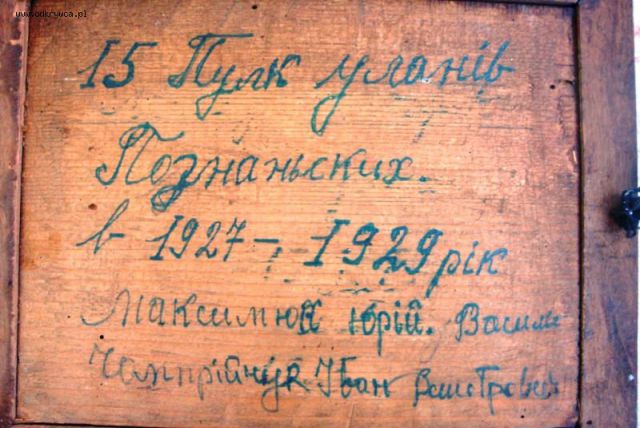 www.odkrywca.pl
15 Пулк уланів
Познаньских.
в 1927 – 1929 рік
Максимюк Юрій. Василь
Іван